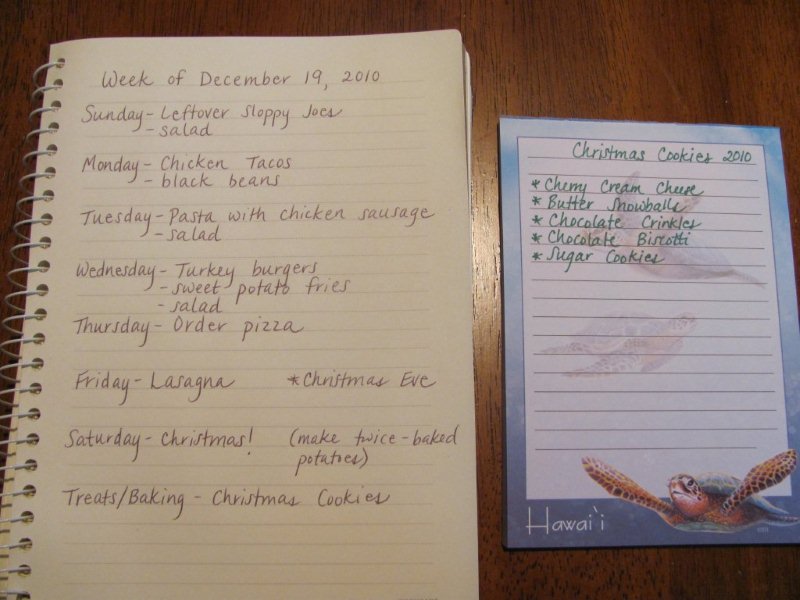 Week of December 19, 2010
Sunday - Leftover Sloppy Joes
- salad
Monday - Chicken Tacos
- black beans
Tuesday - Pasta with chicken sausage
- salad
Wednesday - Turkey burgers
- sweet potato fries
- salad
Thursday - Order pizza
Friday - Lasagna *Christmas Eve
Saturday - Christmas! (make twice-baked
potatoes)
Treats/Baking - Christmas Cookies
Christmas Cookies 2010
* Cherry Cream Cheese
* Butter Snowballs
* Chocolate Crinkles
* Chocolate Biscotti
* Sugar Cookies
Hawai'i